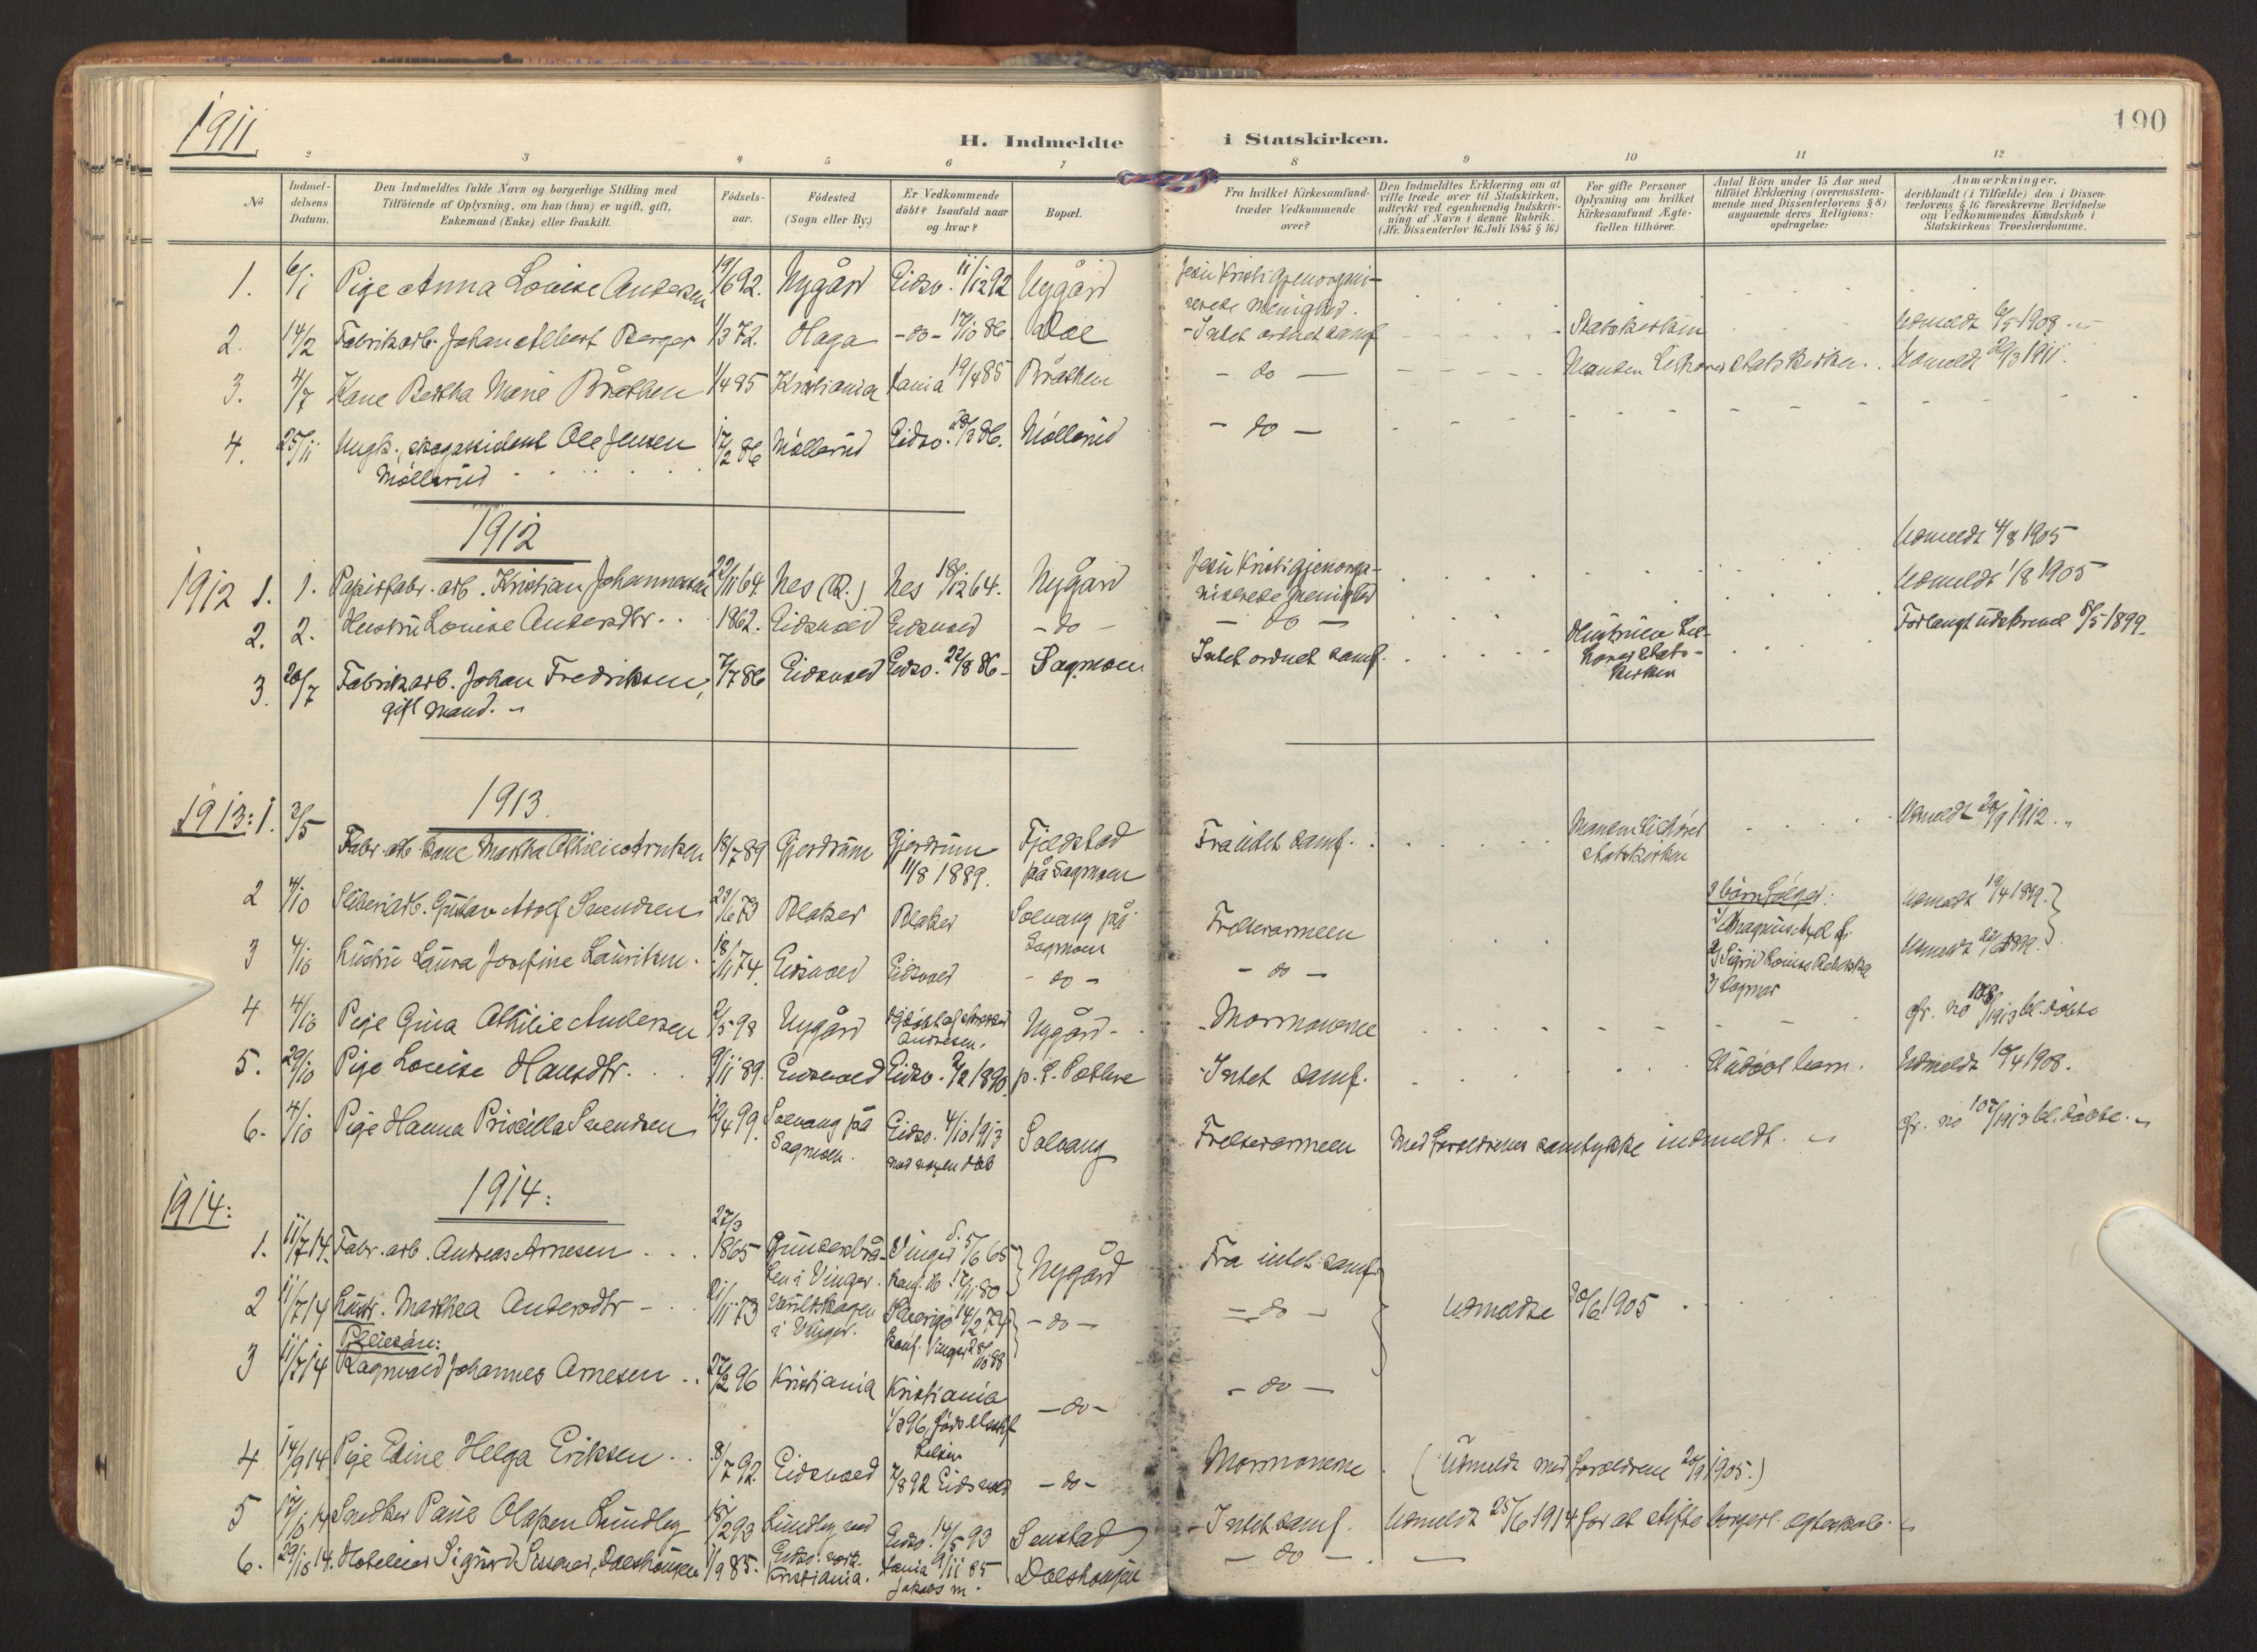 1911.
190
H. Indmeldte i Statskirken.
2 3 4 5 6 7 8 9 10 11 12
No
Indmel-
delsens
Datum.
Den Indmeldtes fulde Navn og borgerlige Stilling med
Tilföiende af Oplysning, om han (hun) er ugift, gift,
Enkemand (Enke) eller fraskilt.
Födsels-
aar.
Födested
(Sogn eller By.)
Er Vedkommende
döbt? Isaafald naar
og hvor?
Bopæl.
Fra hvilket Kirkesamfund-
træder Vedkommende
over?
Den Indmeldtes Erklæring om at
ville træde over til Statskirken,
udtrykt ved egenhændig Indskriv-
ning af Navn i denne Rubrik.
(Jfr. Dissenterlov 16. Juli 1845 § 16.)
For gifte Personer
Oplysning om hvilket
Kirkesamfund Ægte-
fællen tilhörer.
Antal Börn under 15 Aar med
tilföiet Erklæring (overensstem-
mende med Dissenterlovens § 8)
angaaende deres Religions-
opdragelse:
Anmærkninger,
deriblandt (i Tilfælde) den i Dissen-
terlovens § 16 foreskrevne Bevidnelse
om Vedkommendes Kundskab i
Statskirkens Troeslærdomme.
1. 6/1 Pige Anna Louise Andersen 19/6 92. Nygård Eidsv. 11/12 92 Nygård Jesu Kristi gjenorgani-
serede menighed.
2. 14/2 Fabrikarb. Johan Albert Berger 1/3 72. Haga -do- 17/10 86 Dal - Intet ordnet samf. Statskirken Udmeldt 6/5 1908
3. 4/7 Kone Bertha Marie Bråthen 1/4 85 Kristiania Kania 19/4 85 Bråthen - do - Manden tilhører statskirken. Udmeldt 20/3 1911.
4. 25/11 Ungk., skogassistent Ole Jensen 17/2 86 Møllerud Eidsv. 28/3 86. Møllerud - do -
Møllerud
1912
1912 1. 1. Papirfabr. arb. Kristian Johannessen 22/11 64. Nes (R.) Nes 18/12 64. Nygård Jesu Kristi gjenorga-
niserede menighed Udmeldt 4/8 1905
2. 2. Hustru Louise Andersdtr. 1862. Eidsvold Eidsvold - do - - do - Udmeldt 1/8 1905
3. 20/7 Fabrikarb. Johan Fredriksen, 7/7 86 Eidsvold Eidsv. 22/8 86 - Sagmoen Intet ordnet samf. Hustruen til-
hører stats-
kirken Forlangt udskrevet 8/5 1899.
gift mand.
1913.
1913: 1. 3/5 Fabr. arb. kone Martha Othilie Arntsen 18/7 89 Gjerdrum Gjerdrum
11/8 1889. Fjeldstad
på Sagmoen Fra intet samf. Manden tilhører
statskirken Udmeldt 20/9 1912.
2 4/10 Sliberiarb. Gustav Adolf Svendsen 23/6 73 Blaker Blaker Solvang på
Sagmoen Frelsesarmeen 3 børn følger:
1) Magnus
2) Sigrid Louise Rebekka
3) Dagmar Udmeldt 19/4 1899.
3 4/10 Hustru Laura Josefine Lauritsen. 18/11 74. Eidsvold Eidsvold - do - - do - Udmeldt
4 4/10 Pige Gina Othilie Andersen 2/5 98 Nygård Nygård - - Mormonerne
5. 29/10 Pige Louise Hansdtr. 9/11 89. Eidsvold Eidsv. 2/2 1890. - Intet samf. Udmeldt 10/4 1908.
6. 4/10 Pige Hanna Priscilla Svendsen 12/4 99. Solvang på
Sagmoen. Eidsv. 4/10 1913
Solvang Frelsesarmeen Med forældrenes samtykke indmeldt.
1914:
1914:
1. 11/7 14. Fabr. arb. Andreas Arnesen 27/3
1865 Vinger 5/6 65 Nygård Fra intet samf.
2 11/7 14 Hustr. Marthea Andersdtr - i Vinger. Sverige 14/2 74 - do - - do - Udmeldte 30/6 1905
Pleiesøn:
3 11/7 14 Ragnvald Johannes Arnesen 27/2 96 Kristiania Kristiania - do - - do -
4 14/9 14 Pige Edine Helga Eriksen 8/7 92. Eidsvold 7/8 92 Eidsvold - do - Mormonerne (Udmeldt med forældrene 20/9 1905.)
5 17/10 14 Snedker Paul Olafsen Lundby 18/2 93 Lundby ved Eidsv. 14/5 93 Senstad - Intet samf. Udmeldt 25/6 1914 for at stifte borgerl. egteskab.
6. 29/10 14. Hotelier Sigurd 1/9 85. Kristiania. Kania 9/11 85
Jakobs m. - do -